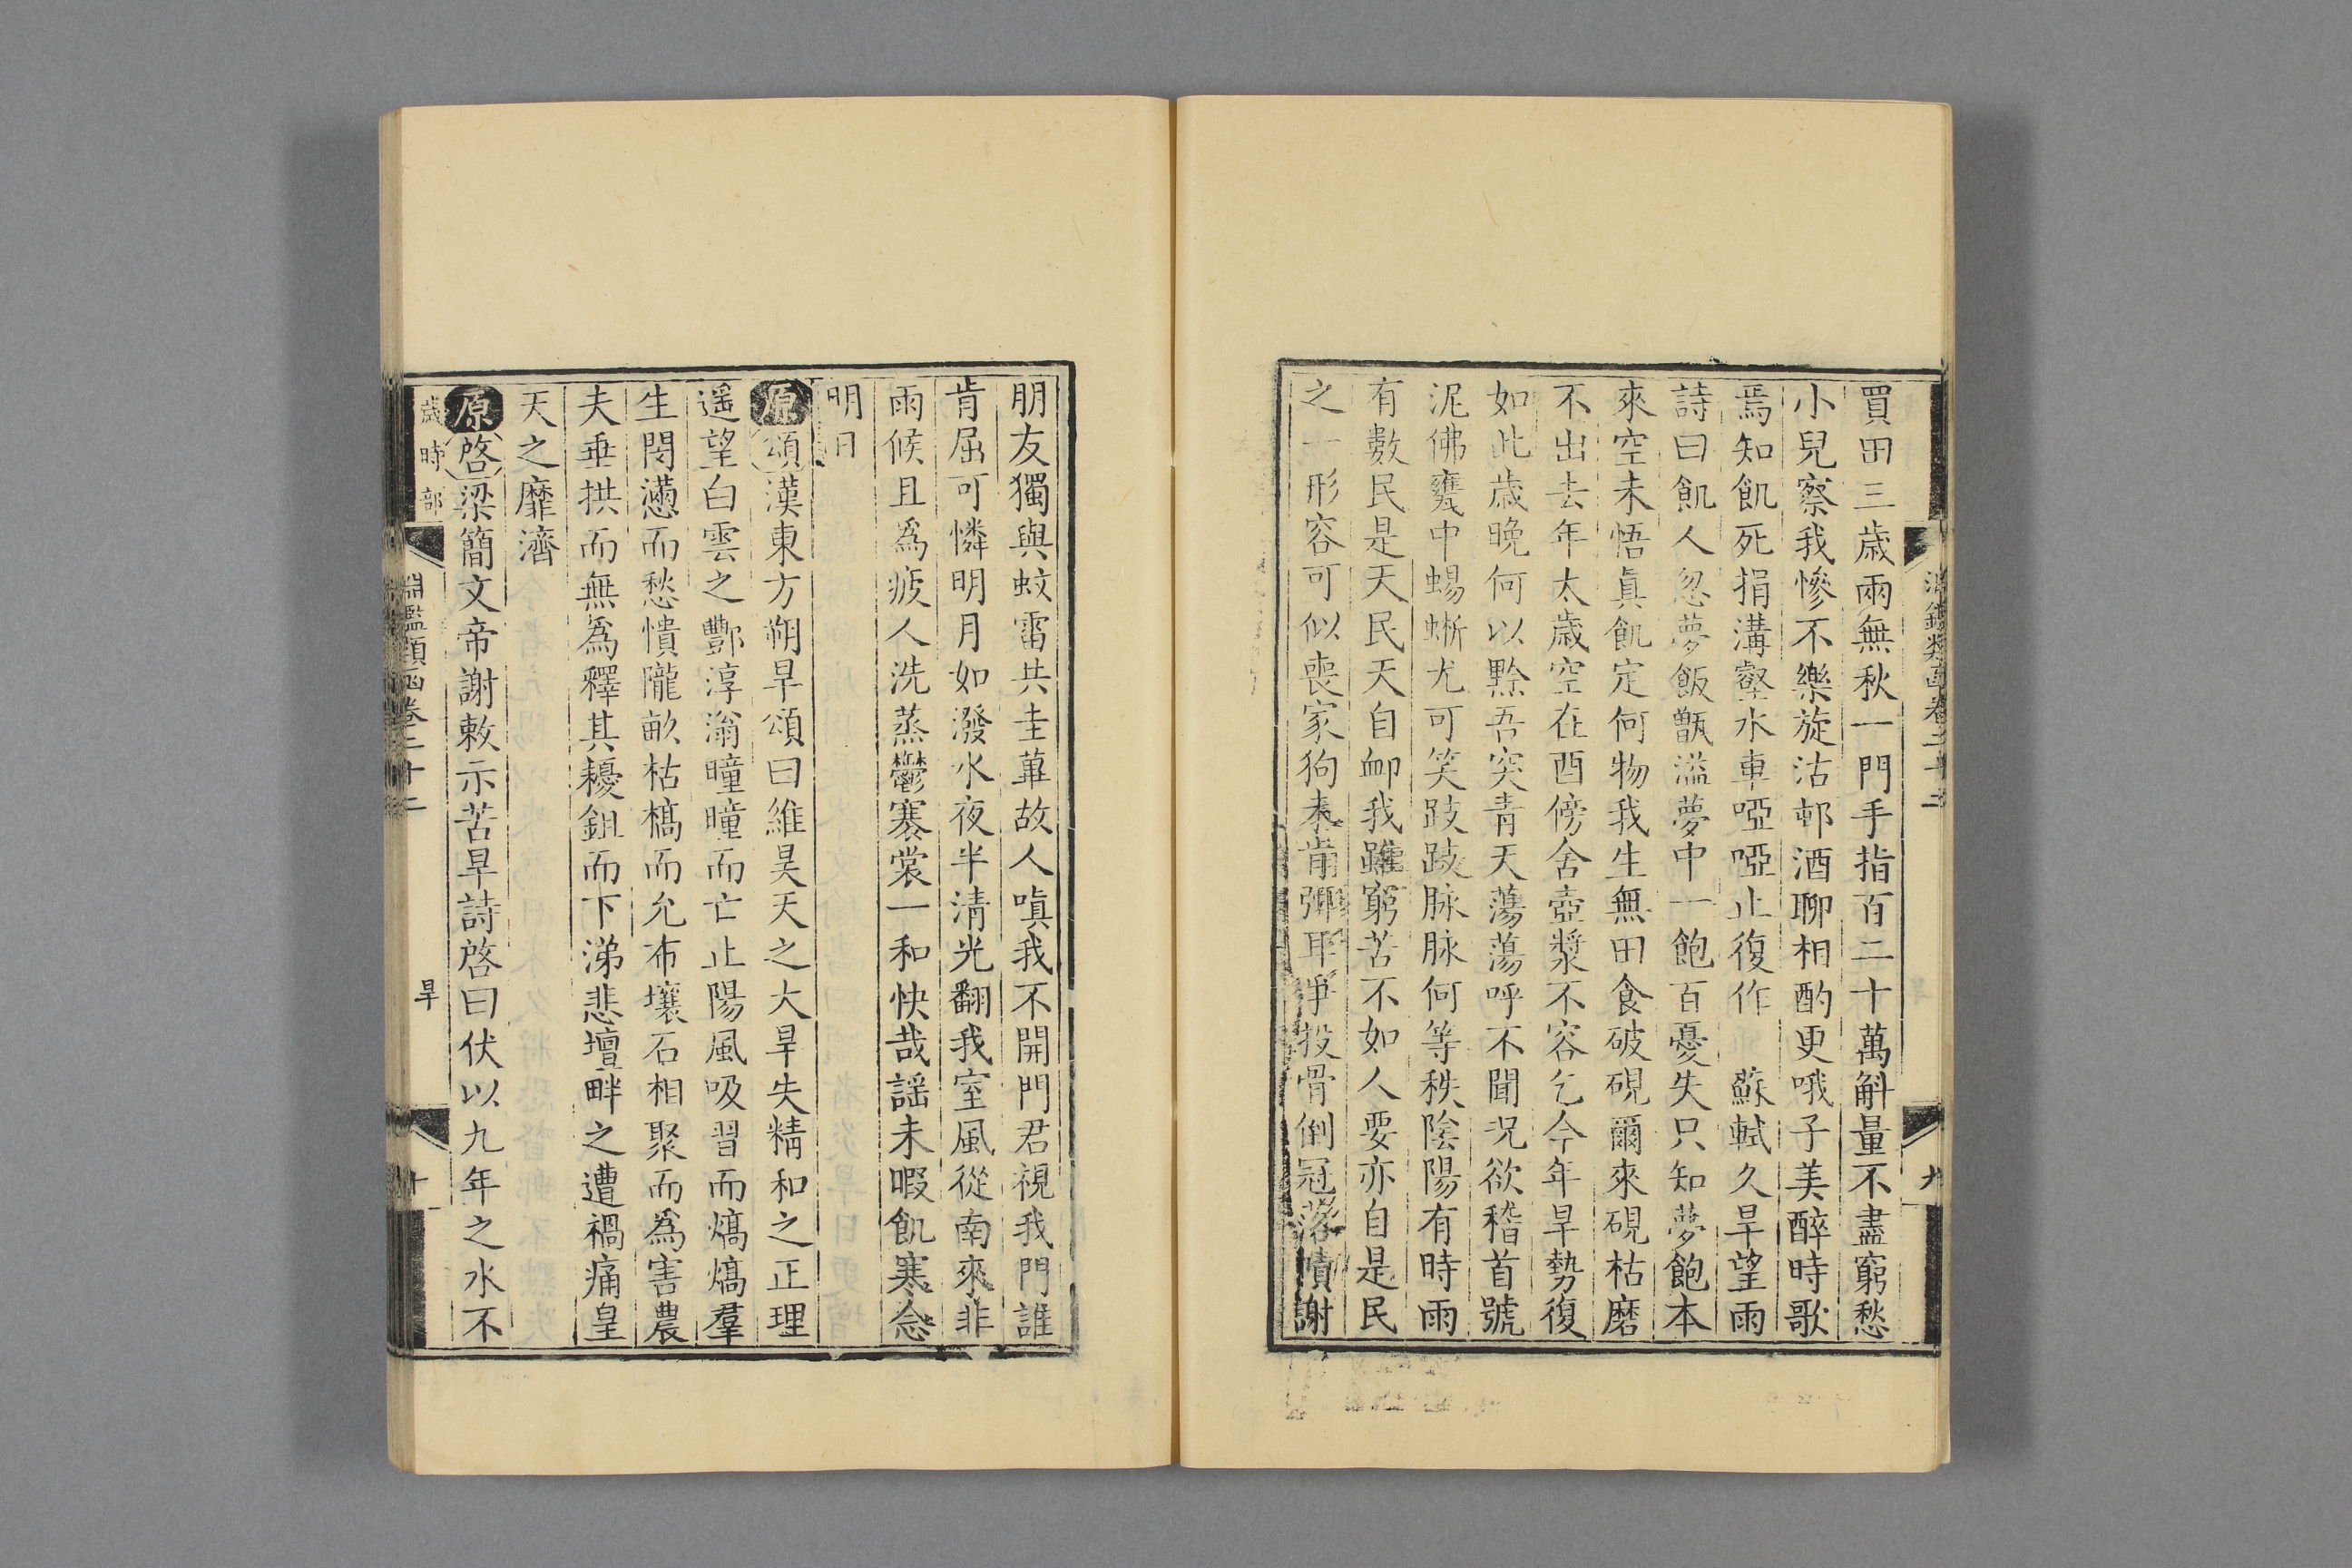 買田三歲兩無秋一門手指百二十萬斛量不盡窮愁
小兒察我慘不樂旋沽邨酒聊相酌更哦子美醉時歌
焉知飢死捐溝壑水車啞啞止復作　蘇軾久旱望雨
詩曰飢人忽夢飯甑溢夢中一飽百憂失只知夢飽本
來空未悟眞飢定何物我生無田食破硯爾來硯枯磨
不出去年太歲空在酉傍舍壺漿不容乞今年旱勢復
如此歲晚何以黔吾突青天蕩蕩呼不聞況欲稽首號
泥佛甕中蜴蜥尤可笑跂跂脉脉何等秩陰陽有時雨
有數民是天民天自卹我雖窮苦不如人要亦自是民
之一形容可似喪家狗未肯彌耳爭投骨倒冠落幘謝
九
朋友獨與蚊雷共圭蓽故人嗔我不開門君視我門誰
肯屈可憐明月如潑水夜半清光翻我室風從南來非
雨候且爲疲人洗蒸鬱褰裳一和快哉謡未暇飢寒念
明日
原頌漢東方朔旱頌曰維昊天之大旱失精和之正理
遥望白雲之酆淳滃曈曈而亡止陽風吸習而熇熇羣
生閔懣而愁憒隴畝枯槁而允布壤石相聚而爲害農
夫垂拱而無爲釋其耰鉏而下涕悲壇畔之遭禍痛皇
天之靡濟
原啓梁簡文帝謝敕示苦旱詩啓曰伏以九年之水不
歲時部
淵鑑類函卷二十二
旱
十